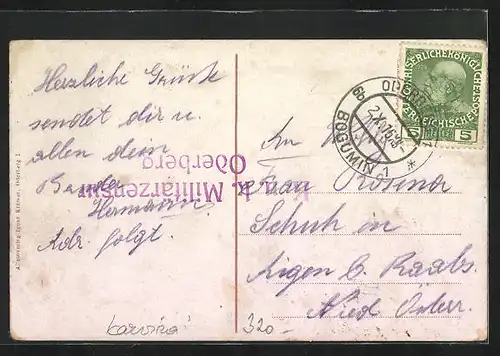 Herzliche Grüße
sendet dir u.
allen dein
Bruder
Hermann
Adr. folgt.
K. k. Militärzensur
Oderberg
KAISERLICHE KÖNIGLICHE
ÖSTERREICHISCHE
5 HELLER 5
BOGUMIN 1
6b
An
Frau Rosina
Schuh in
Aigen b. Raabs
Nied. Österr.
Karviná
320.-